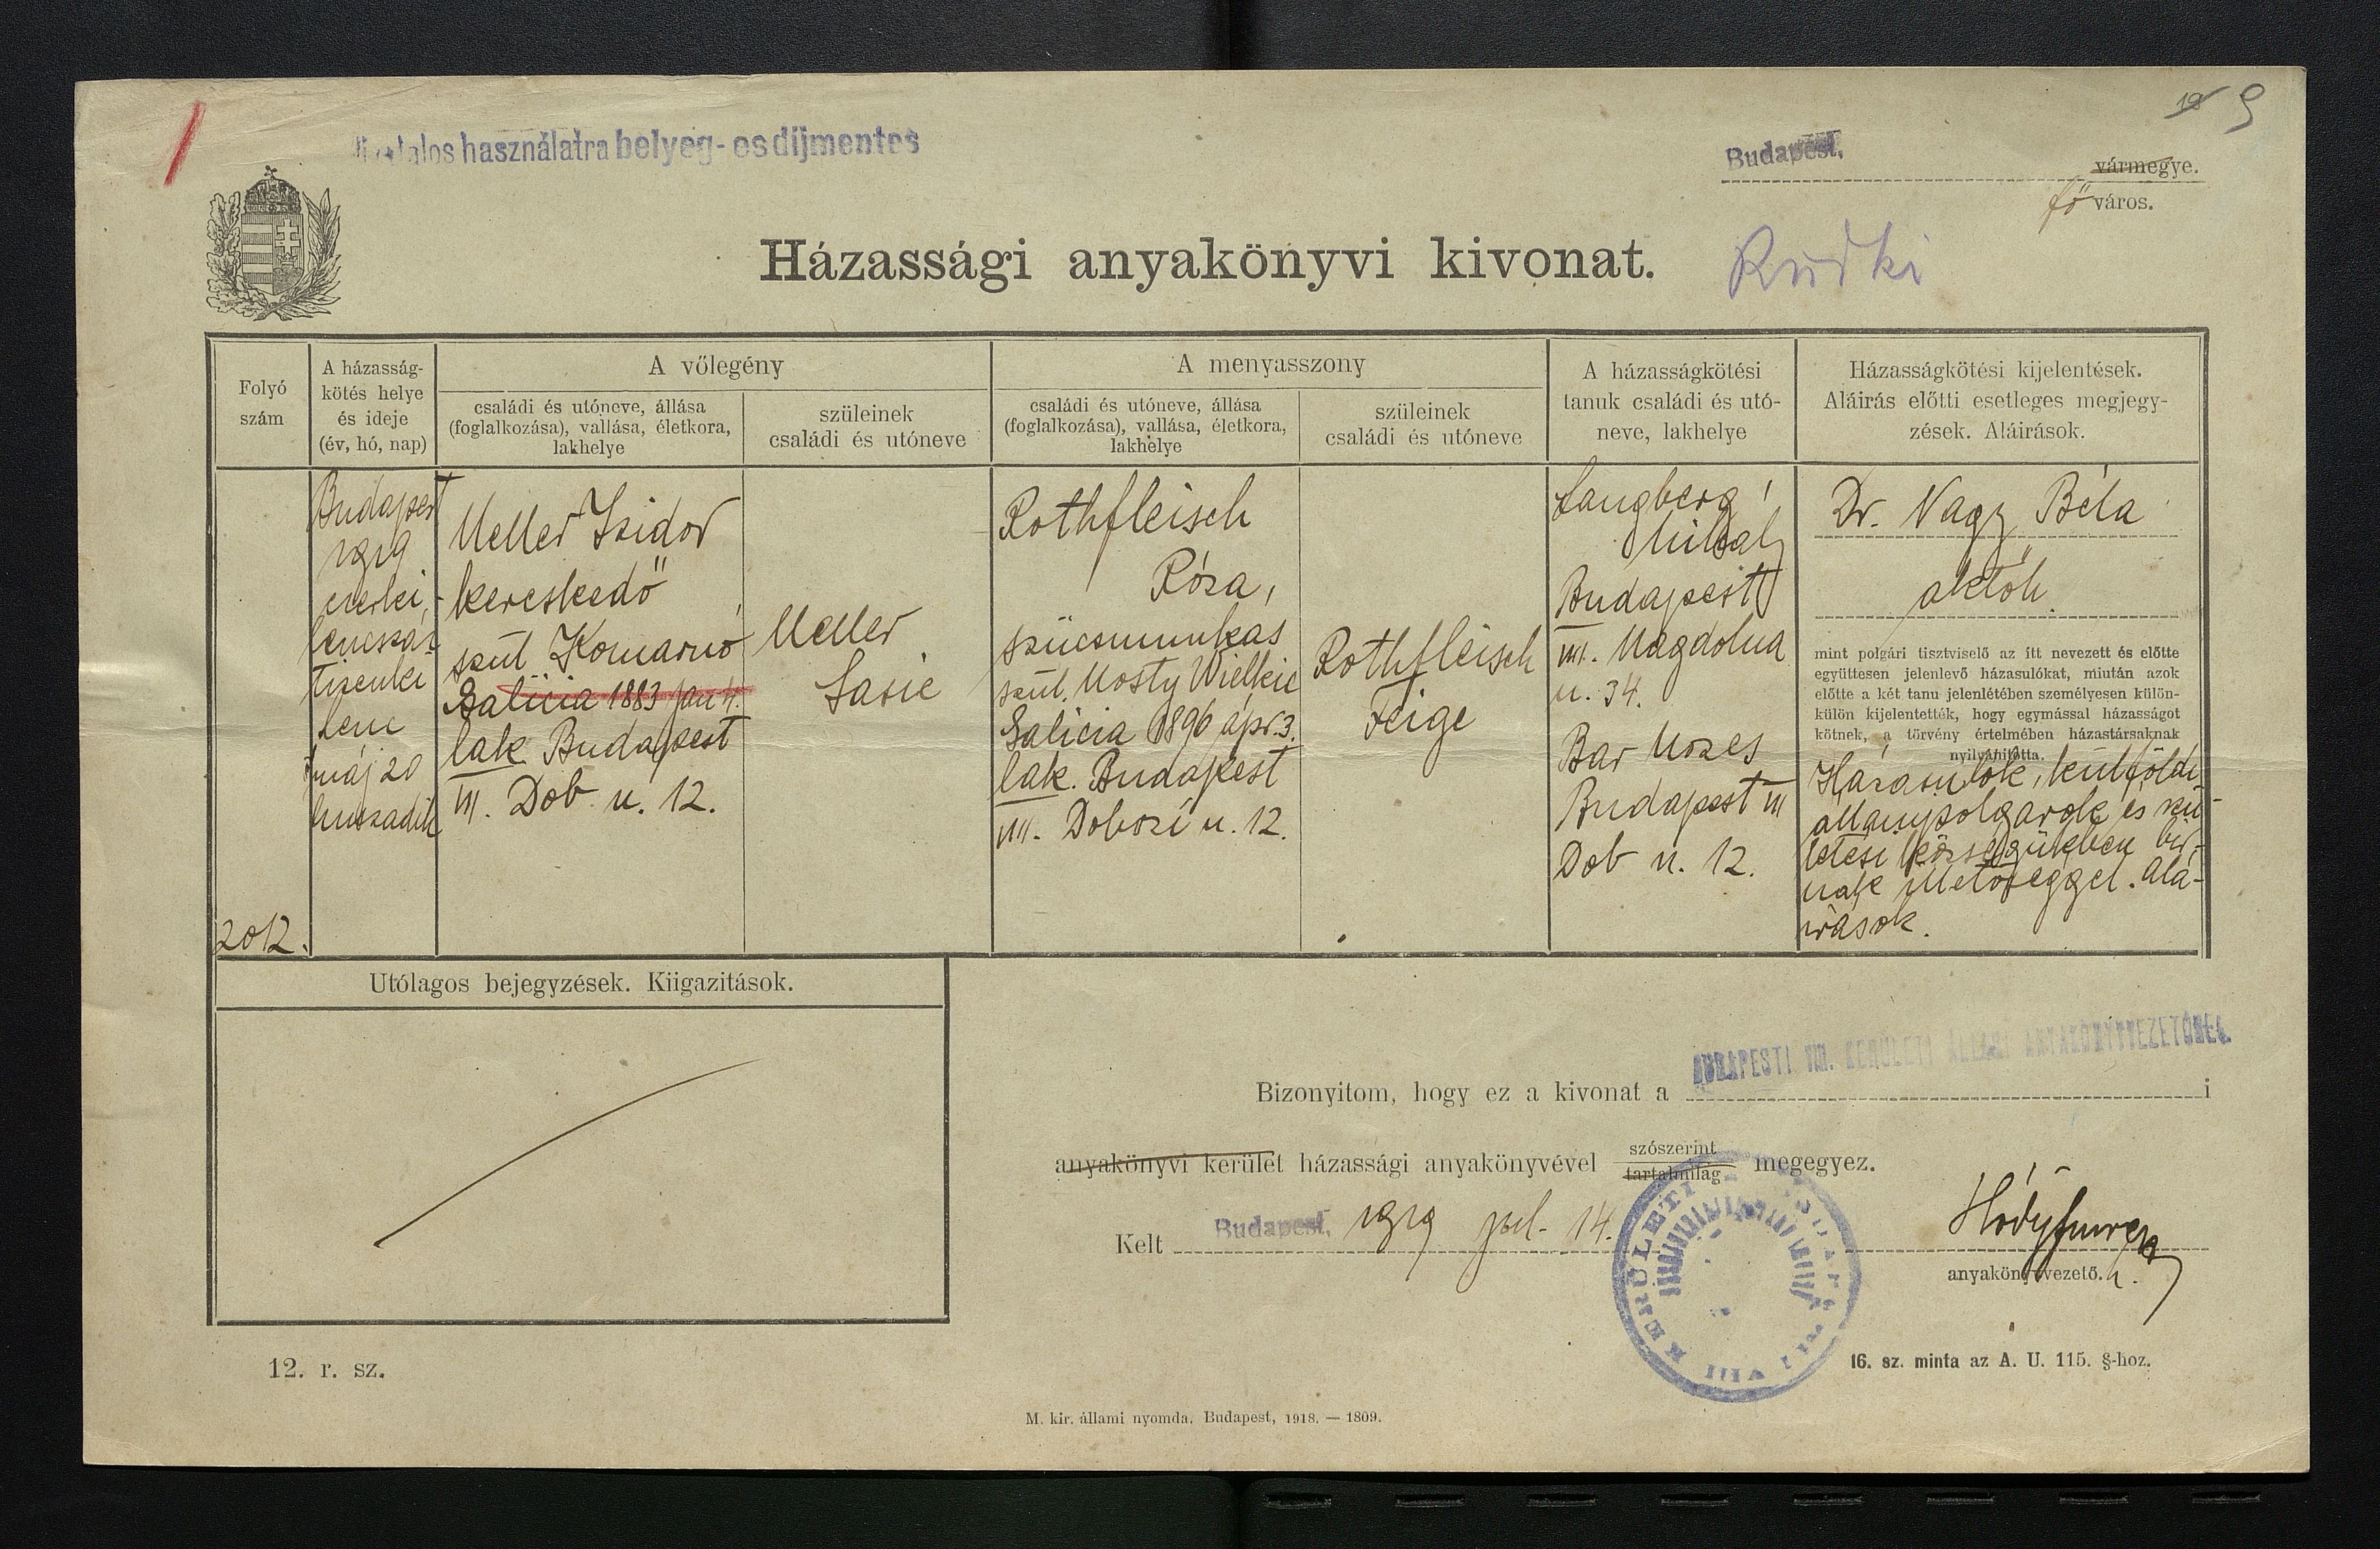 19 9
Hivatalos használatra bélyeg- és díjmentes
Budapest,
vármegye.
fő város.
Házassági anyakönyvi kivonat.
Rudki
Folyó
szám
A házasság-
kötés helye
és ideje
(év, hó, nap)
A vőlegény
családi és utóneve, állása
(foglalkozása), vallása, életkora,
lakhelye
szüleinek
családi és utóneve
A menyasszony
családi és utóneve, állása
(foglalkozása), vallása, életkora,
lakhelye
szüleinek
családi és utóneve
A házasságkötési
tanuk családi és utó-
neve, lakhelye
Házasságkötési kijelentések.
Aláirás előtti esetleges megjegy-
zések. Aláirások.
2012.
Budapest
1919
ezerki-
lencszáz
tizenki
lenc
máj 20
huszadik
Meller Izidor
kereskedő
szül Komarno
Galicia 1883 jan 4.
lak Budapest
VII. Dob u. 12.
Meller
Sasie
Rothfleisch
Róza,
szücsmunkas
szül. Mosty Wielkie
Galicia 1896 ápr. 3.
lak. Budapest
VIII. Dobozi u. 12.
Rothfleisch
Feige
Langberg
Mihaly
Budapest
VIII. Magdolna
u. 34.
Bar Mozes
Budapest VII
Dob u. 12.
Dr. Nagy Béla
aktóh.
mint polgári tisztviselő az itt nevezett és előtte
együttesen jelenlevő házasulókat, miután azok
előtte a két tanu jelenlétében személyesen külön-
külön kijelentették, hogy egymással házasságot
kötnek, a törvény értelmében házastársaknak
nyilvánította.
Házasulók, külföldi
állampolgarok és szü-
letési községükben bir-
nak illetőséggel. Alá-
irások.
Utólagos bejegyzések. Kiigazitások.
BUDAPESTI VIII. KERÜLETI ÁLLAMI ANYAKÖNYVVEZETŐSÉG.
Bizonyitom, hogy ez a kivonat a i
anyakönyvi kerület házassági anyakönyvével szószerint
tartalmilag megegyez.
Kelt Budapest, 1919 jul. 14.
anyakönyvvezető. h.
VIII KERÜLETI
12. r. sz.
16. sz. minta az A. U. 115. §-hoz.
M. kir. állami nyomda. Budapest, 1918. — 1809.